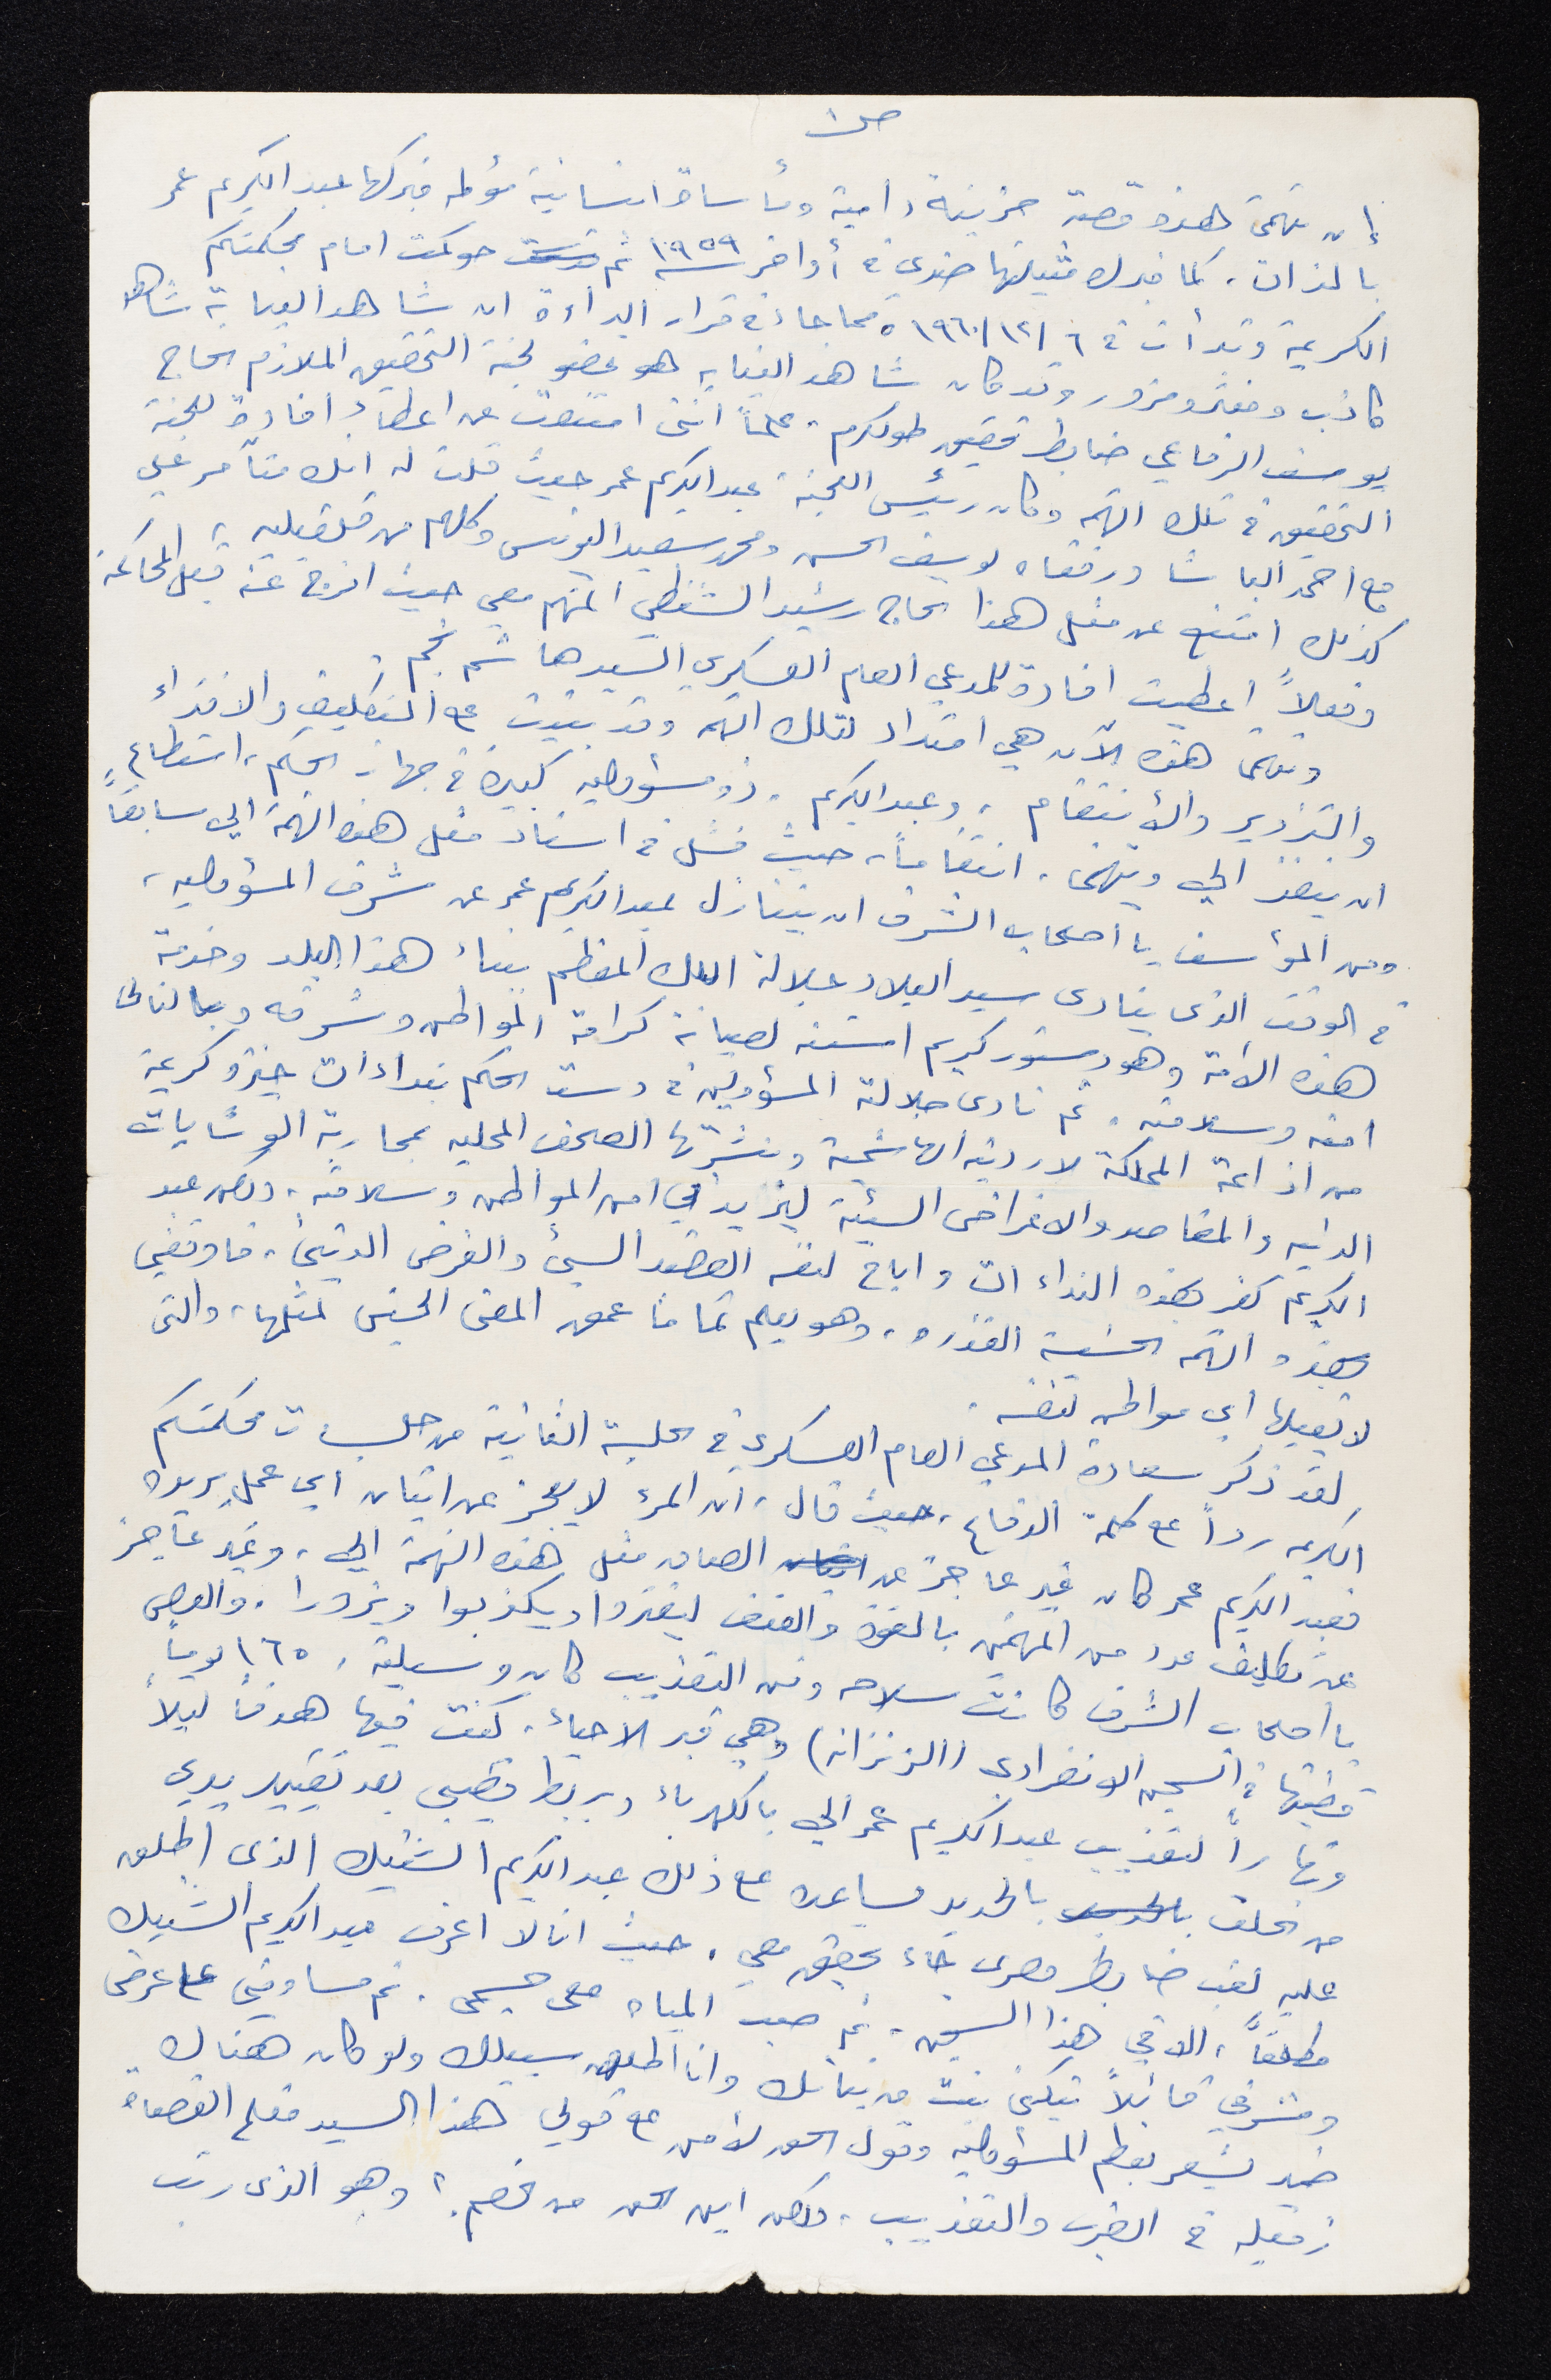 ص١
إن تهمتي هذه قصة حزينة دامية ومأساة انسانية مؤلمه فبركها عبد الكريم عمر
بالذات، كما فبرك مثيلتها ضدي في أواخر سنة ١٩٥٩ ثم حوكمت امام محكمتكم
الكريمة وتبرأت في ٦/١٢/١٩٦٠، مما جاء في قرار البراءة ان شاهد النيابة شاهد
كاذب ومفتر ومزور وقد كان شاهد النيابه هو عضو لجنة التحقيق الملازم الحاج
يوسف الرفاعي ضابط تحقيق طولكرم. علماً أنني امتنعت عن اعطاء افادة للجنة
التحقيق في تلك التهم وكان رئيس اللجنة عبد الكريم عمر حيث قلت له انك متآمر علي
مع احمد الباشا ورفقاه يوسف الحسن ومحمد سعيد اليونس وكلهم من قلقيليه،
كذلك امتنع عن مثل هذا الحاج رشيد الشنطي المتهم معي حيث افرج عنه قبل المحاكمة
وفعلاً اعطيت افادة للمدعي العام العسكري السيد هاشم نجم.
وتهمتي هذه الآن هي امتداد لتلك التهم وقد بنيت على التكليف والافتراء
والتزوير والأنتقام، وعبد الكريم، ذو مسؤوليه كبيرة في جهاز الحكم، استطاع
ان ينفذ الي ويتهمني، انتقاماً، حيث فشل في اسناد مثل هذه التهمة الي سابقاً
ومن المؤسف يا أصحاب الشرف ان يتنازل عبد الكريم عمر عن شرف المسؤوليه،
في الوقت الذي ينادى سيد البلاد جلالة الملك المعظم ببناء هذا البلد وخدمة
هذه الامة وهو دستور كريم استنه لصيانة كرامة المواطن وشرفه وبالتالي
امنه وسلامته، ثم نادى جلالته المسؤولين في دست الحكم بنداءات خيرة كريمة
من اذاعة المملكة لاردنيه الهاشمية ونشرتها الصحف المحليه بمحاربة الوشايات
الدنيه والمقاصد والاغراض السيئة ليزيد في امن المواطن وسلامته، ولكن عبد
الكريم كفر بهذه النداءات واباح لنفسه القصد السيئ والغرض الدنيئ، فاوقفني
بهذه التهم الخسيسة القذره، وهو يعلم تماما عمق المعنى الحسي لمثلها، والتي
لا يقبلها اي مواطن لنفسه.
لقد ذكر سعادة المدعي العام العسكري في الجلسة الثانية من جلسات محكمتكم
الكريمه رداً على كلمة الدفاع، حيث قال، ان المرء لا يعجز عن اتيان اي عمل يريده
فعبد الكريم عمر كان غير عاجز عن الصاق مثل هذه التهمة الي، وغير عاجز
عن تكليف عدد من المهتمين بالقوة والعنف ليفتروا ويكذبوا ويزوروا. والعصي
يا أصحاب الشرف كانت سلاحه وفن التعذيب كان وسيلته، ١٦٥ يوماً
قضيتها في السجن الانفرادي (الزنزانه) وهي قبر الاحياء. كنت فيها هدفاً ليلاً
ونهاراً لتعذيب عبد الكريم عمر الي بالكهرباء وبربط قضيبي بعد تقييد يدي
من الخلف بالحديد يساعده على ذلك عبد الكريم الشبيك الذي اطلق
عليه لقب ضابط مصري جاء يحقق معي. حيث انا لا اعرف عبد الكريم الشبيك
مطلقاً، الا في هذا السجن، ثم صب المياه على جسمي. ثم مساومتي على عرضي
وشرفي قائلاً بنت من بناتك وانا اطلق سبيلك ولو كان هناك
ضمير يشعر بعظم المسؤوليه وقول الحق لأمن على قولي هذا السيد
زميله في الضرب والتعذيب، ولكن اين الحق من الخصم؟ وهو الذي رتب